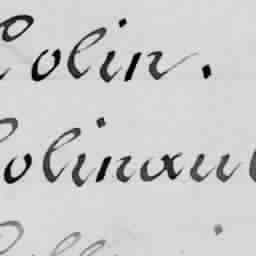 Colin.
Colinaul